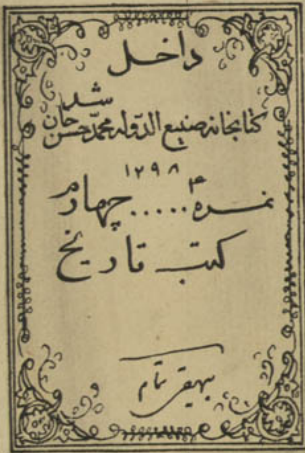 داخل
کتابخانه صنیع الدوله محمد حسن خان شد
۱۲۹۸
نمره ۴ ..... چهارم
کتب تاریخ
بیهقی تمام